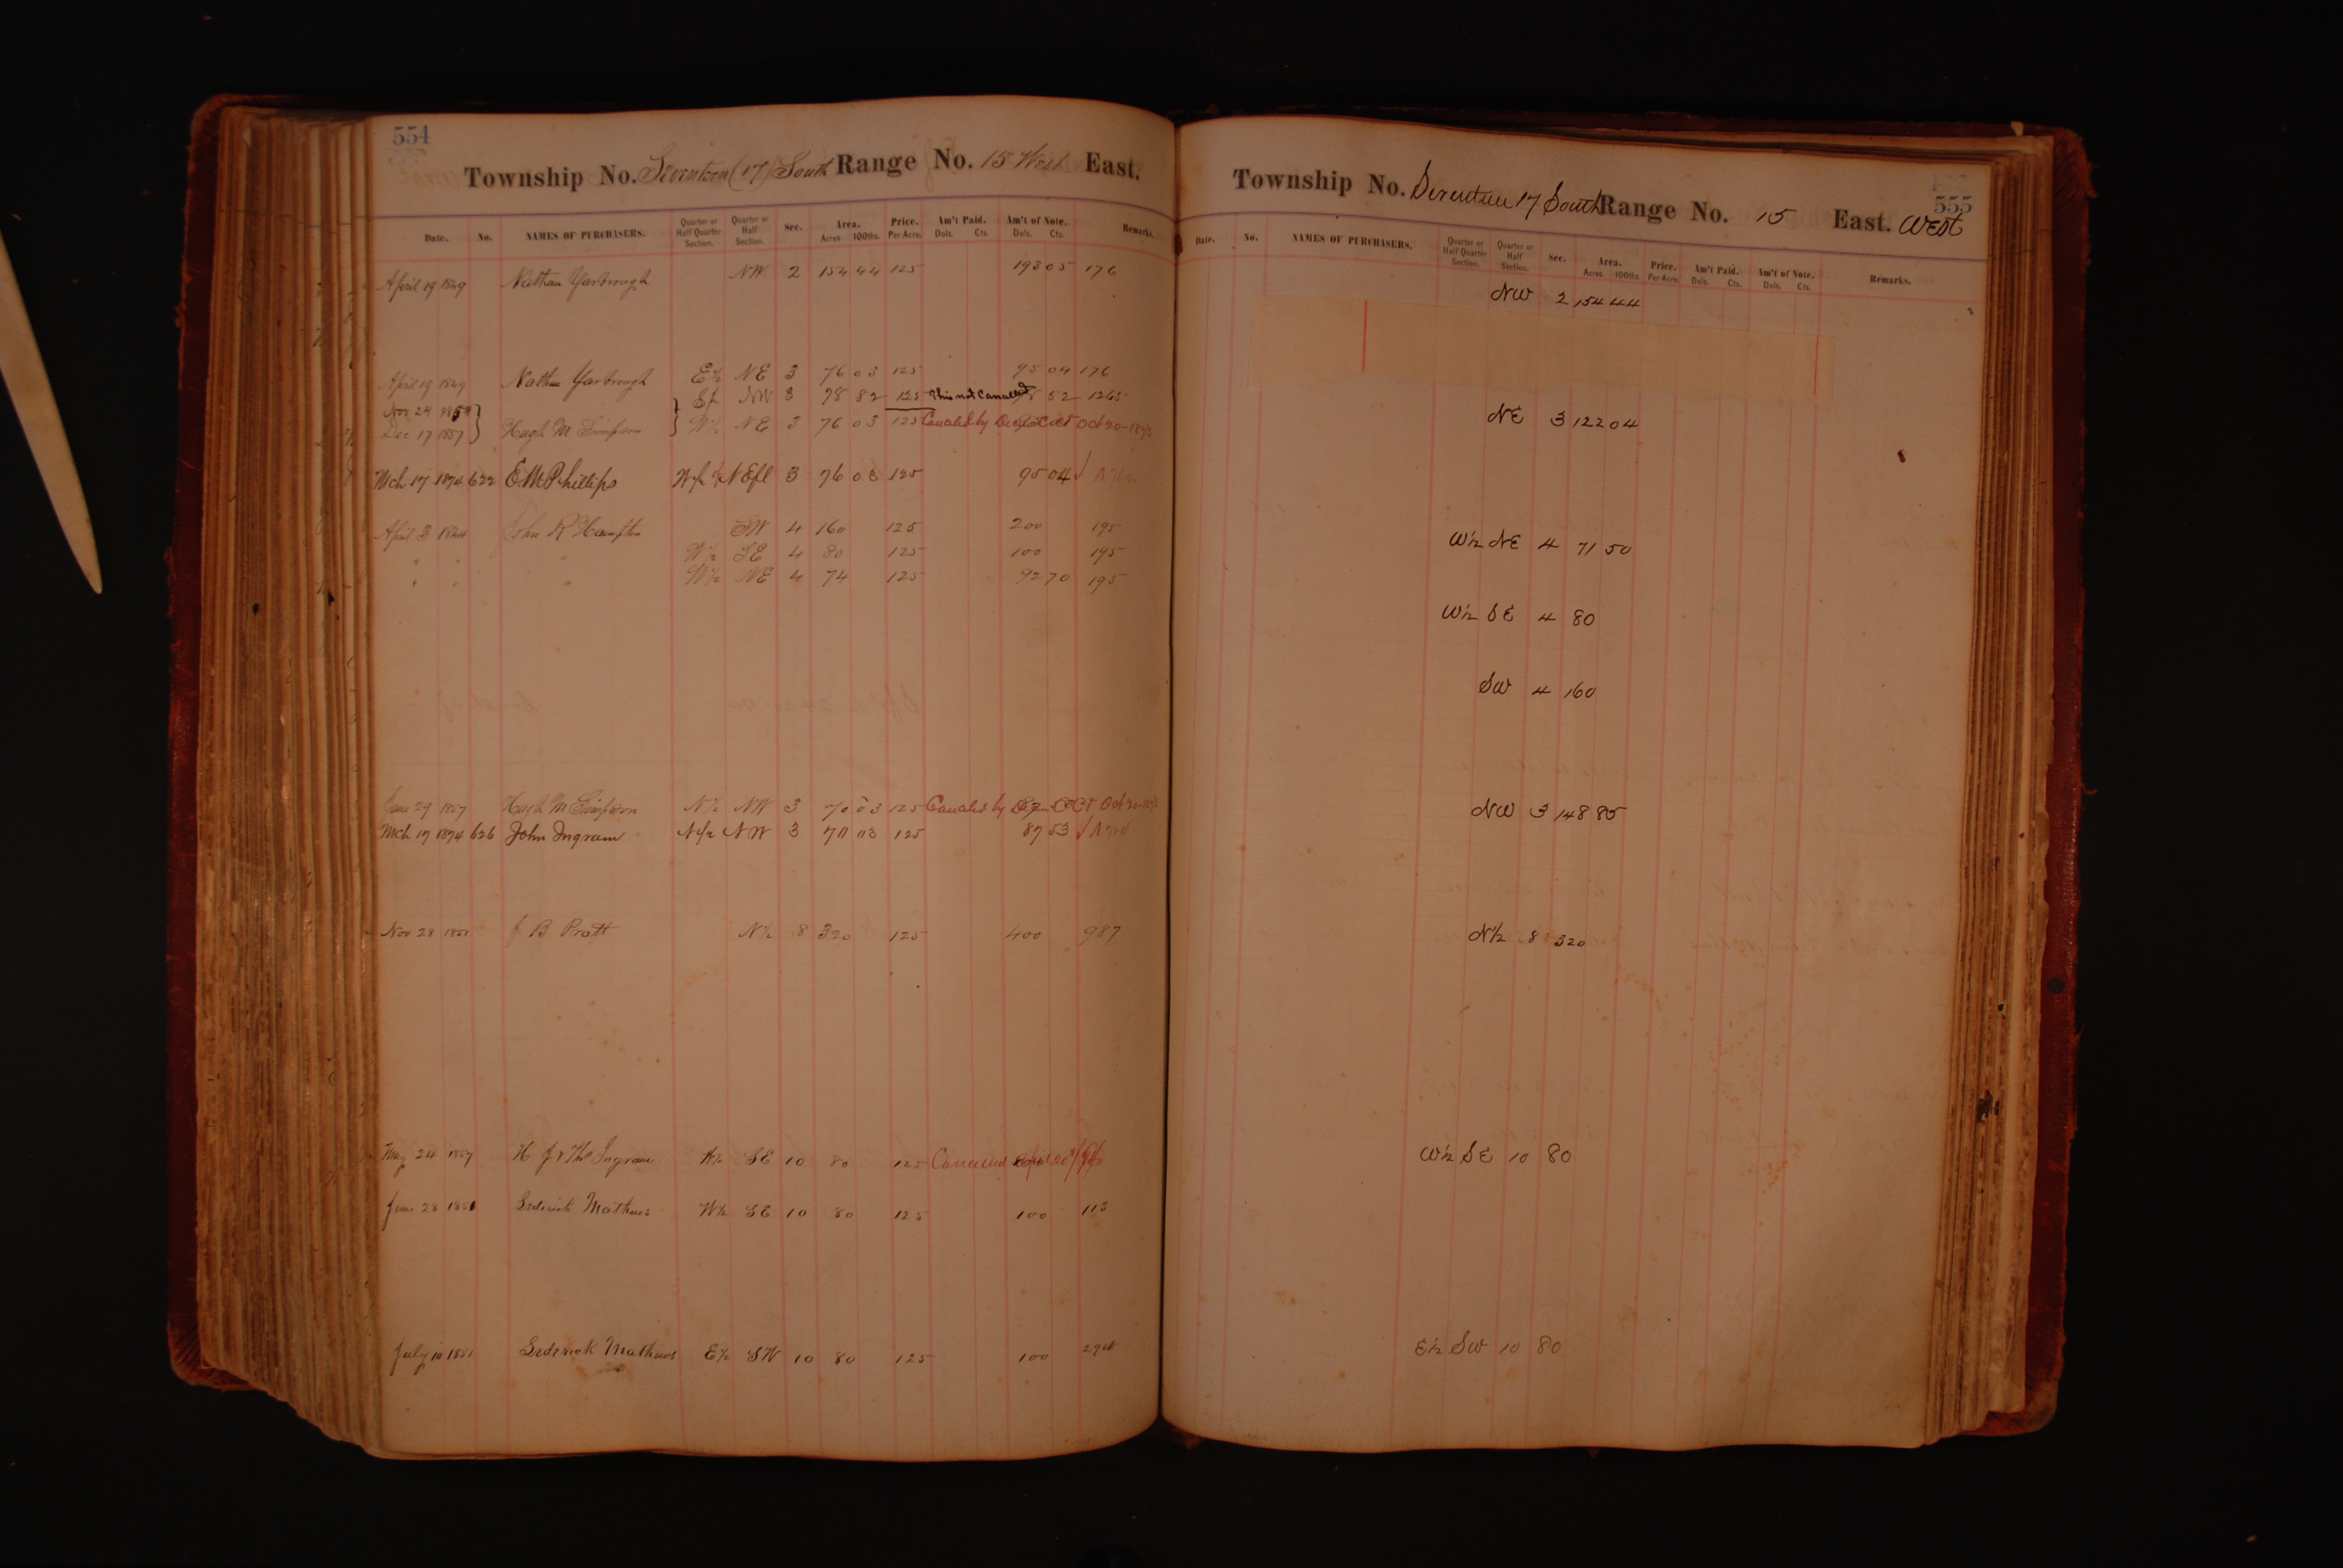 554
Township No. Seventeen (17) South Range No. 15 West East.
Date. No. NAMES OF PURCHASERS. Quarter or Half Quarter Section. Quarter or Half Section. Sec. Area. Acres 100ths. Price. Per Acre. Am't Paid. Dols. Cts. Am't of Note. Dols. Cts. Remarks.
April 19 1849 Nathan Yarbrough NW 2 154 44 125 193 05 176
April 19 1849 Nathan Yarbrough E½ NE 3 76 03 125 95 04 176
Nov 24 1854 S½ NW 3 78 82 125 This not Cancelled 52 1265
Dec 17 1857 Hugh M Simpson W½ NE 3 76 03 125 Canceled by Oct 20-1873
Mch 17 1874 622 E.M. Phillips W½ of NEfl 3 76 03 125 95 04 ✓
April 3 1844 John R Hampton SW 4 160 125 200 195
" " " W½ SE 4 80 125 100 195
" " " W½ NE 4 74 125 92 70 195
June 29 1857 Hugh M Simpson N½ NW 3 70 03 125 Canceled by Oct 20-1873
Mch 17 1874 626 John Ingram N½ NW 3 70 03 125 87 53 ✓
Nov 28 1851 J B Pratt N½ 8 320 125 400 987
May 24 1857 Ingram SE 10 80 125 Cancelled
June 28 1851 Sederick Mathews W½ SE 10 80 125 100 113
July 10 1851 Sederick Mathews E½ SW 10 80 125 100
555
Township No. Seventeen 17 South Range No. 15 East. West
Date. No. NAMES OF PURCHASERS. Quarter or Half Quarter Section. Quarter or Half Section. Sec. Area. Acres 100ths. Price. Per Acre. Am't Paid. Dols. Cts. Am't of Note. Dols. Cts. Remarks.
NW 2 154 44
NE 3 122 04
W½ NE 4 71 50
W½ SE 4 80
SW 4 160
NW 3 148 85
N½ 8 320
W½ SE 10 80
E½ SW 10 80